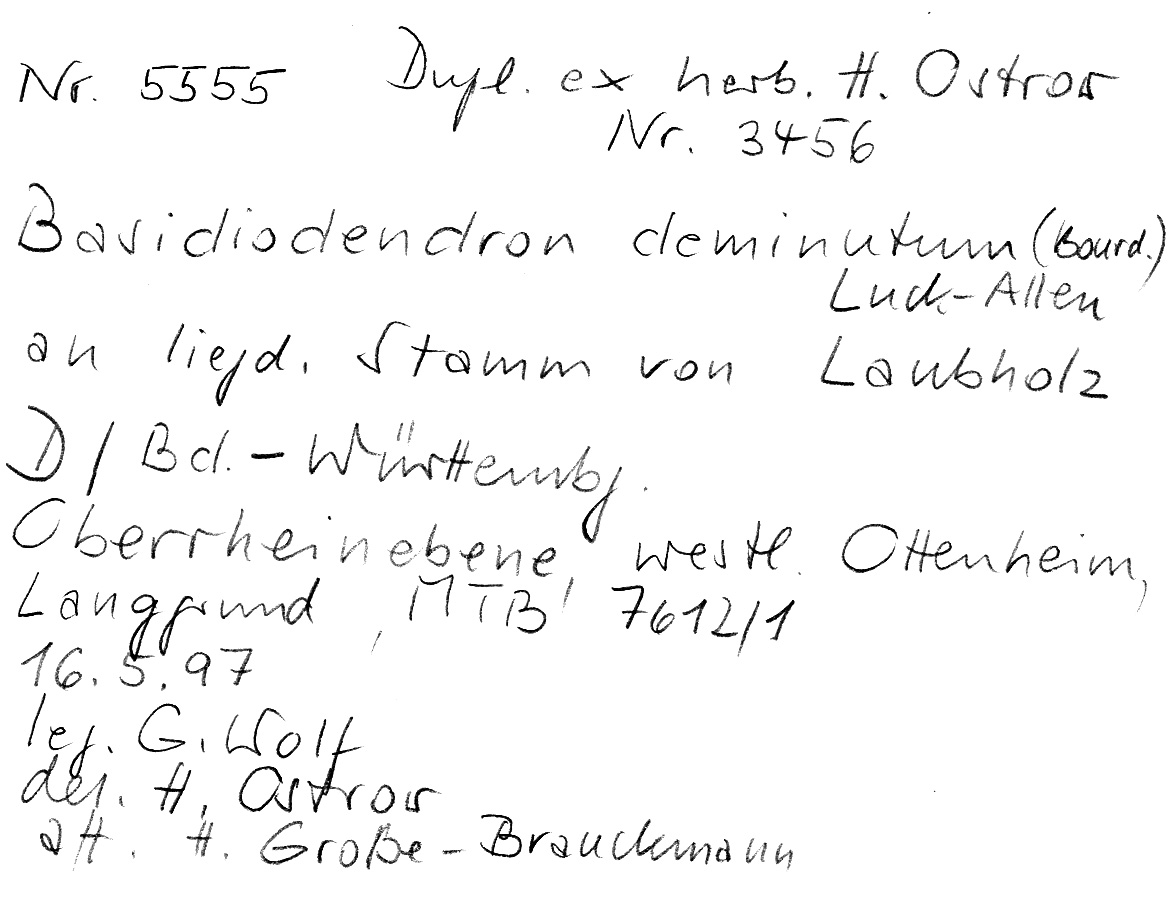 Nr. 5555 Dupl. ex herb. H. Ostrow
Nr. 3456
Basidiodendron deminutum (Bourd.)
Luck-Allen
an liegd. Stamm von Laubholz
D / Bd.-Württembg.
Oberrheinebene, westl. Ottenheim,
Langgrund, MTB 7612/1
16.5.97
leg. G. Wolf
det. H. Ostrow
att. H. Große-Brauckmann